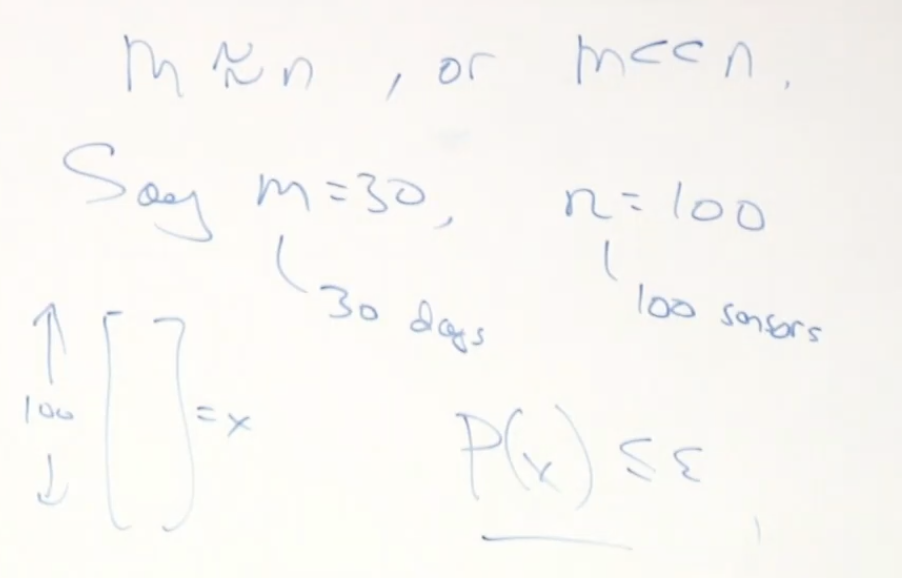 m ≈ n , or m << n .
Say m = 30, n = 100
30 days 100 sensors
↑
100 [ ] = x
↓
P(x) ≤ ε